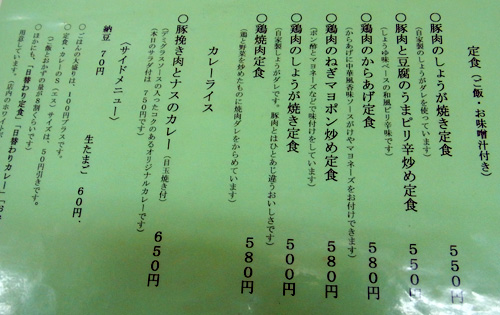 定食(ご飯・お味噌汁付き)
○豚肉のしょうが焼き定食 550円
(自家製しょうがダレを使っています)
○豚肉と豆腐のうまピリ辛炒め定食 550円
(しょうゆ味ベースの和風ピリ辛味です)
○鶏肉のからあげ定食 580円
(からあげに中華風香味ソースがけやマヨネーズをお付けできます)
○鶏肉のねぎマヨポン炒め定食 580円
(ポン酢とマヨネーズなどで味付けをしています)
○鶏肉のしょうが焼き定食 500円
(自家製しょうがダレです。豚肉とはひとあじ違うおいしさです)
○鶏焼肉定食 580円
(鶏と野菜を炒めたものに焼肉ダレをからめています)
カレーライス
○豚挽き肉とナスのカレー(目玉焼き付) 650円
(デミグラスソースの入ったコクのあるオリジナルカレーです)
(本日のサラダ付は 750円です)
(サイドメニュー)
納豆 70円 生たまご 60円.
○ごはんの大盛りは、100円プラスです。
○定食・カレーのS(エス)サイズは、50円引きです。
(ご飯とおかずの量が8割くらいです)
○ほかにも、「日替わり定食」「日替わりカレー」
用意しています。(店内のホワイト